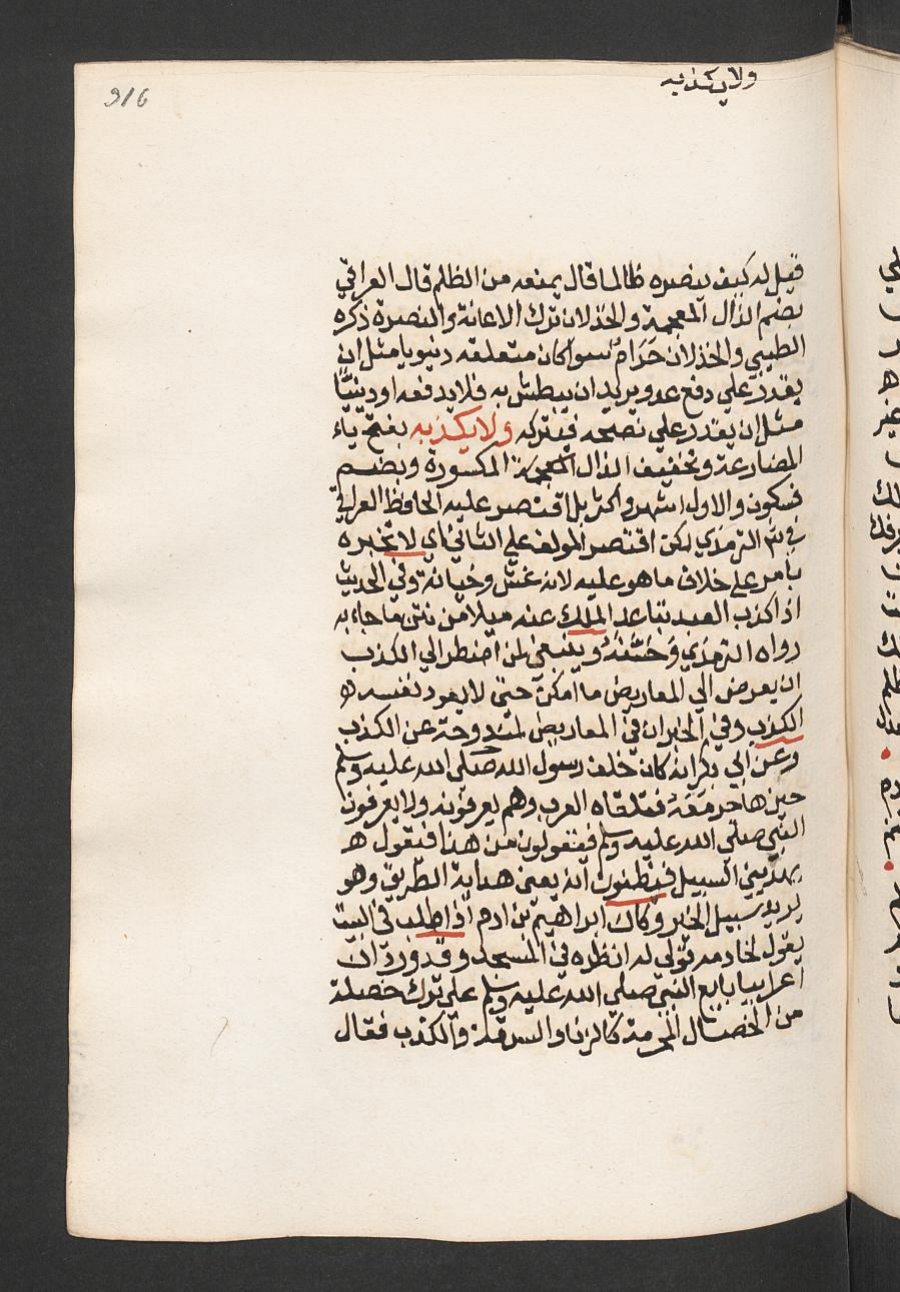 ولا يكذبه
916
قيل له كيف ينصره ظالما قال يمنعه من الظلم قال العراقي
بضم الذال المعجمة والخذلان ترك الاعانة والنصرة ذكره
الطيبي والخذلان حَرَام سوا كان متعلقه دنيويا مثل ان
يقدر علي دفع عدو يريد ان يبطش به فلا يدفعه او دينيًّا
مثل ان يقدر علي نصحه فيتركه ولا يكذبه بفتح ياء
المضارعة وتخفيف الذال المعجمة المكسورة وبضم
فسكون والاول اشهر واكثر بل اقتصر عليه الحافظ العراقي
في شرح الترمذي لكن اقتصر المولف علي الثاني اي لا تخبره
بامر علي خلاف ما هو عليه لانه غش وخيانة وفي الحديث
اذا كذب العبد تباعد الملك عنه ميلا من نتن ما جاء به
رواه الترمذي وَحَسَّنَهُ وينبغي لمن اضطر الي الكذب
ان يعرض الي المعاريض ما امكن حتي لا يعود نفسه
الكذب وفي الخبر ان في المعاريض لمندوحة عن الكذب
وعن ابي بكر انه كان خلف رسول الله صلي الله عليه وسلم
حين هاجر مَعَهُ فتلقاه العرب وهم يعرفونه ولا يعرفون
النبي صلي الله عليه وسلم فيقولون من هذا فيقول
يهديني السبيل فيظنون انه يعني هداية الطريق وهو
يريد سبيل الخير وكان ابراهيم بن ادم اذا طلب في البيت
يقول لخادمه قولي له انظره في المسجد وقد ورد ان
اعرابيا بايع النبي صلي الله عليه وسلم علي ترك خصلة
من الخصال المحرمة كالزنا والسرقة والكذب فقال